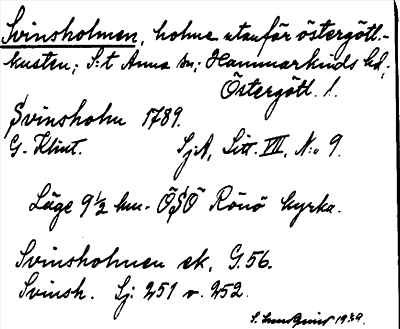 Svinsholmen, holme utanför östergötl.-
kusten; S:t Anna sn; Hammarkinds hd,
Östergötl. l.
Svinsholm 1789.
G. Klint. SjA, Litt. VII, N:o 9.
Läge 9½ km. ÖSÖ Rönö kyrka.
Svinsholmen ek. G.56.
Svinsh. Sj: 251 v. 252.
S. Lundquist 1939.